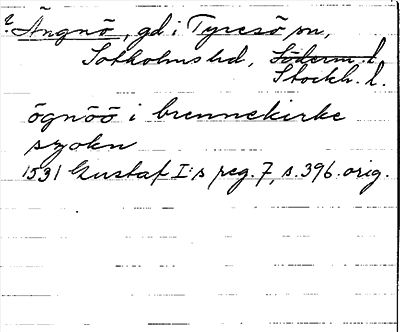 ? Ängnö, gd i Tyresö sn,
Sotholms hd, Söderm. l.
Stockh. l.
ögnöö i brennekirke
szokn
1531 Gustaf I:s reg. 7, s. 396. orig.